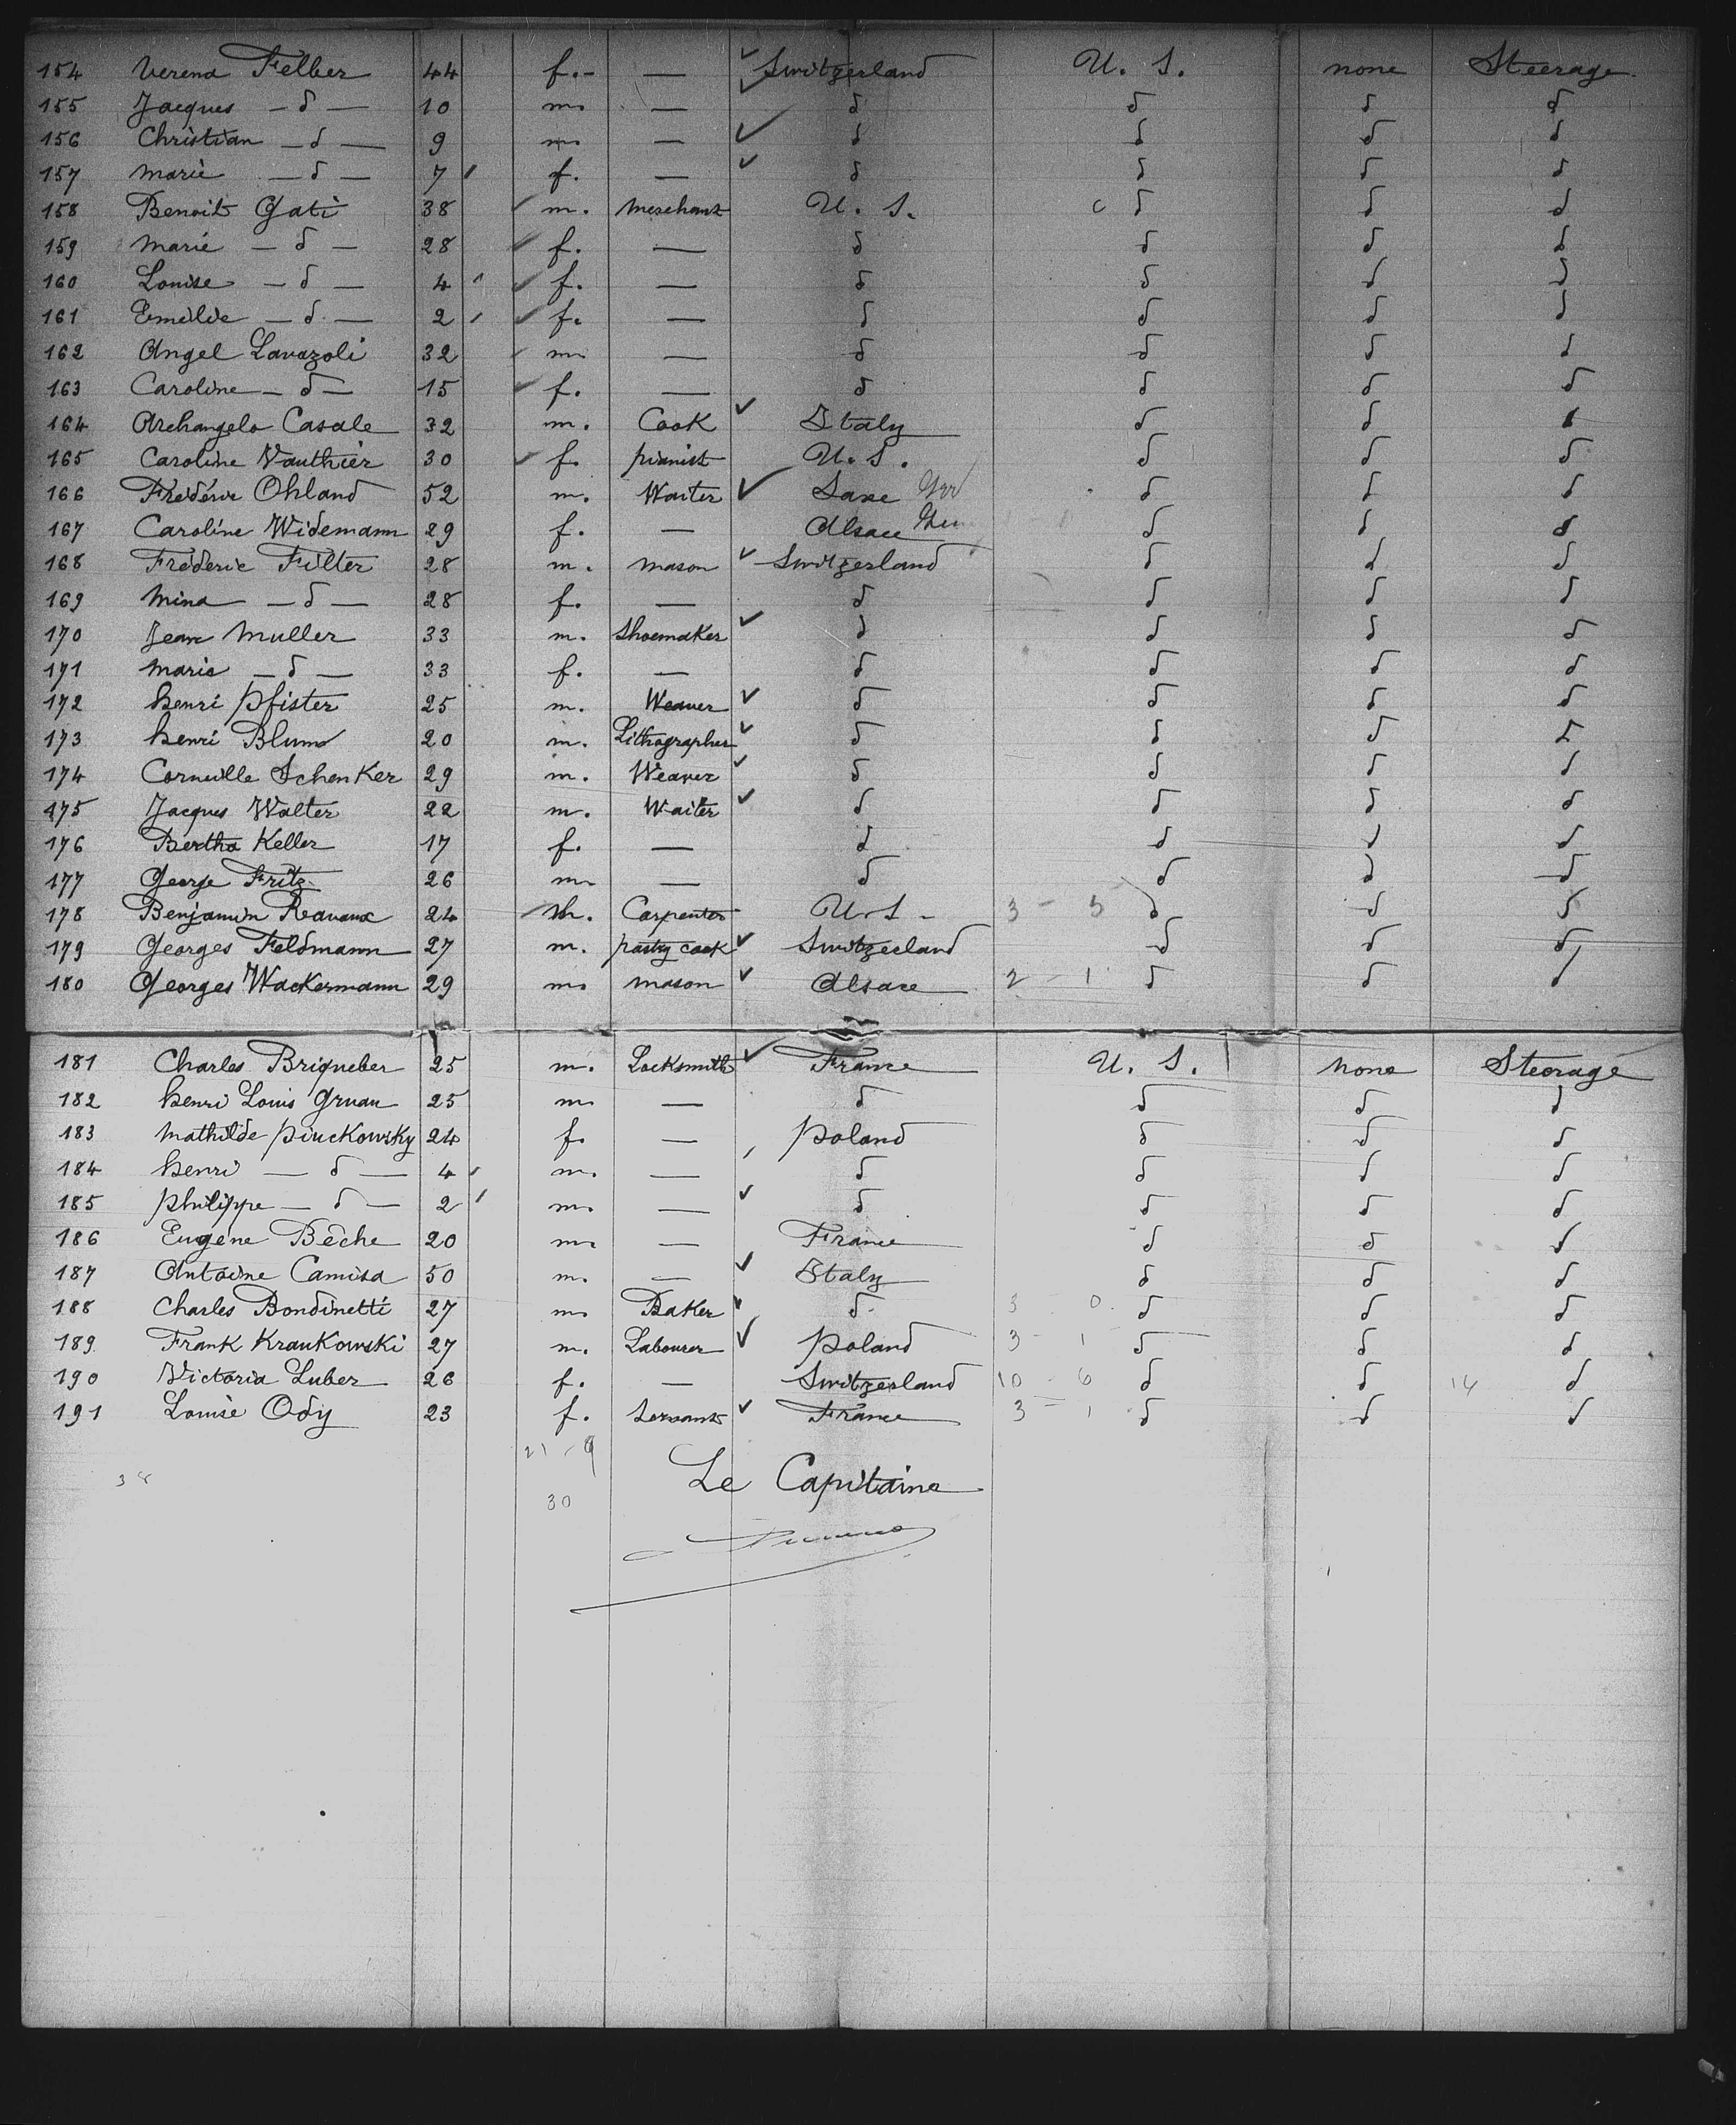 154 Verena Felber 44 f. — Switzerland U. S. none Steerage
155 Jacques — d — 10 m. — d d d d
156 Christian — d — 9 m. — d d d d
157 Marie — d — 7 f. — d d d d
158 Benoit Gati 38 m. Merchant U. S. d d d
159 Marie — d — 28 f. — d d d d
160 Louise — d — 4 f. — d d d d
161 Emelide — d — 2 f. — d d d d
162 Angel Lavazoli 32 m. — d d d d
163 Caroline — d — 15 f. — d d d d
164 Archangelo Casale 32 m. Cook Italy d d d
165 Caroline Vauthier 30 f. pianist U. S. d d d
166 Frederic Ohland 52 m. Waiter Saxe Ger d d d
167 Caroline Widemann 29 f. — Alsace d d d
168 Frederic Filter 28 m. mason Switzerland d d d
169 Mina — d — 28 f. — d d d d
170 Jean Muller 33 m. Shoemaker d d d d
171 Maria — d — 33 f. — d d d d
172 henri Pfister 25 m. Weaver d d d d
173 henri Blum 20 m. Lithographer d d d d
174 Corneille Schenker 29 m. Weaver d d d d
175 Jacques Walter 22 m. Waiter d d d d
176 Bertha Keller 17 f. — d d d d
177 George Fritz 26 m. — d d d d
178 Benjamin 24 m. Carpenter U. S. 3 - 5 d d d
179 Georges Feldmann 27 m. pastry cook Switzerland d d d
180 Georges Wackermann 29 m. mason Alsace 2 - 1 d d d
181 Charles Briqueler 25 m. Locksmith France U. S. none Steerage
182 henri Louis Gruau 25 m. — d d d d
183 Mathilde Pinckowsky 24 f. — Poland d d d
184 henri — d — 4 m. — d d d d
185 Philippe — d — 2 m. — d d d d
186 Eugene Bêche 20 m. — France d d d
187 Antoine Camisa 50 m. — Italy d d d
188 Charles Bondinetti 27 m. Baker d 3 - 0 d d d
189 Frank Kraukowski 27 m. Labourer Poland 3 - 1 d d d
190 Victoria Luber 26 f. — Switzerland 10 - 6 d d 14 d
191 Louise Ody 23 f. Servant France 3 - 1 d d d
21 - 9
38
Le Capitaine
30